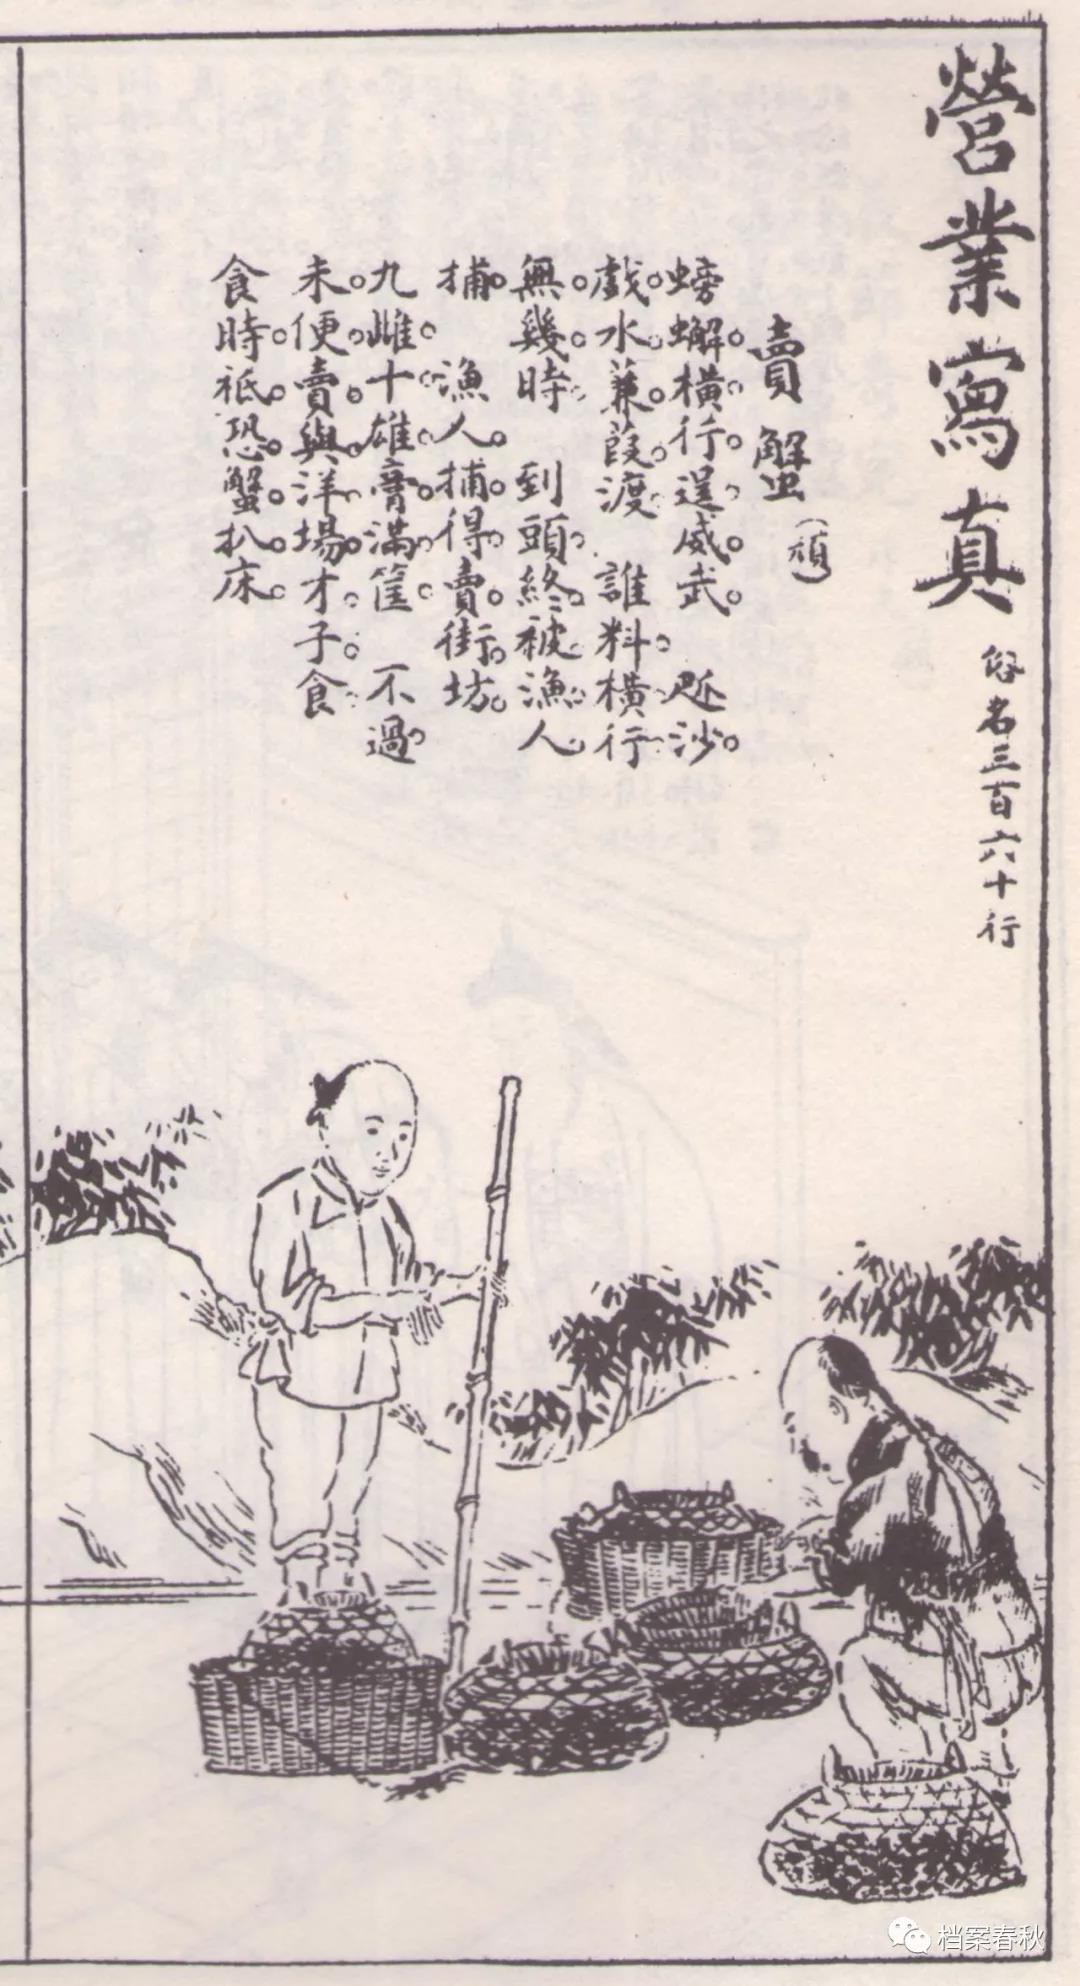 營業寫真 俗名三百六十行
賣蟹(頑)
螃蠏橫行逞威武 跁沙
戲水蒹葭渡 誰料橫行
無幾時 到頭終被漁人
捕 漁人捕得賣街坊
九雌十雄膏滿筐 不過
未便賣與洋場才子食
食時祗恐蟹扒床
档案春秋